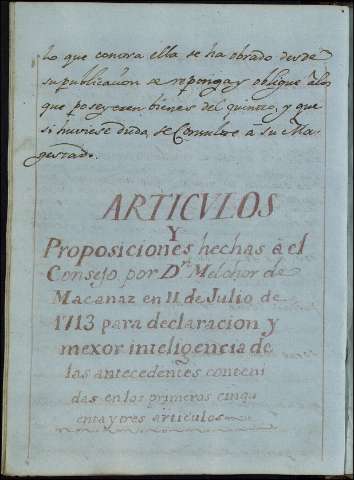 lo que contra ella se ha obrado desde
su publicacion se reponga y obligue a los
que poseyeren bienes del quinto, y que
si huviese duda, se Consulte à su Ma-
gestad.
ARTICVLOS
Y
Proposiciones hechas à el
Consejo por Dn Melchor de
Macanaz en 11 de Julio de
1713 para declaracion y
mexor inteligencia de
las antecedentes conteni
das en los primeros cinqu
enta y tres articulos